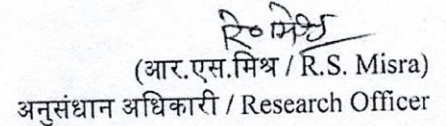 रा० मिश्र
(आर.एस.मिश्र / R.S. Misra)
अनुसंधान अधिकारी / Research Officer